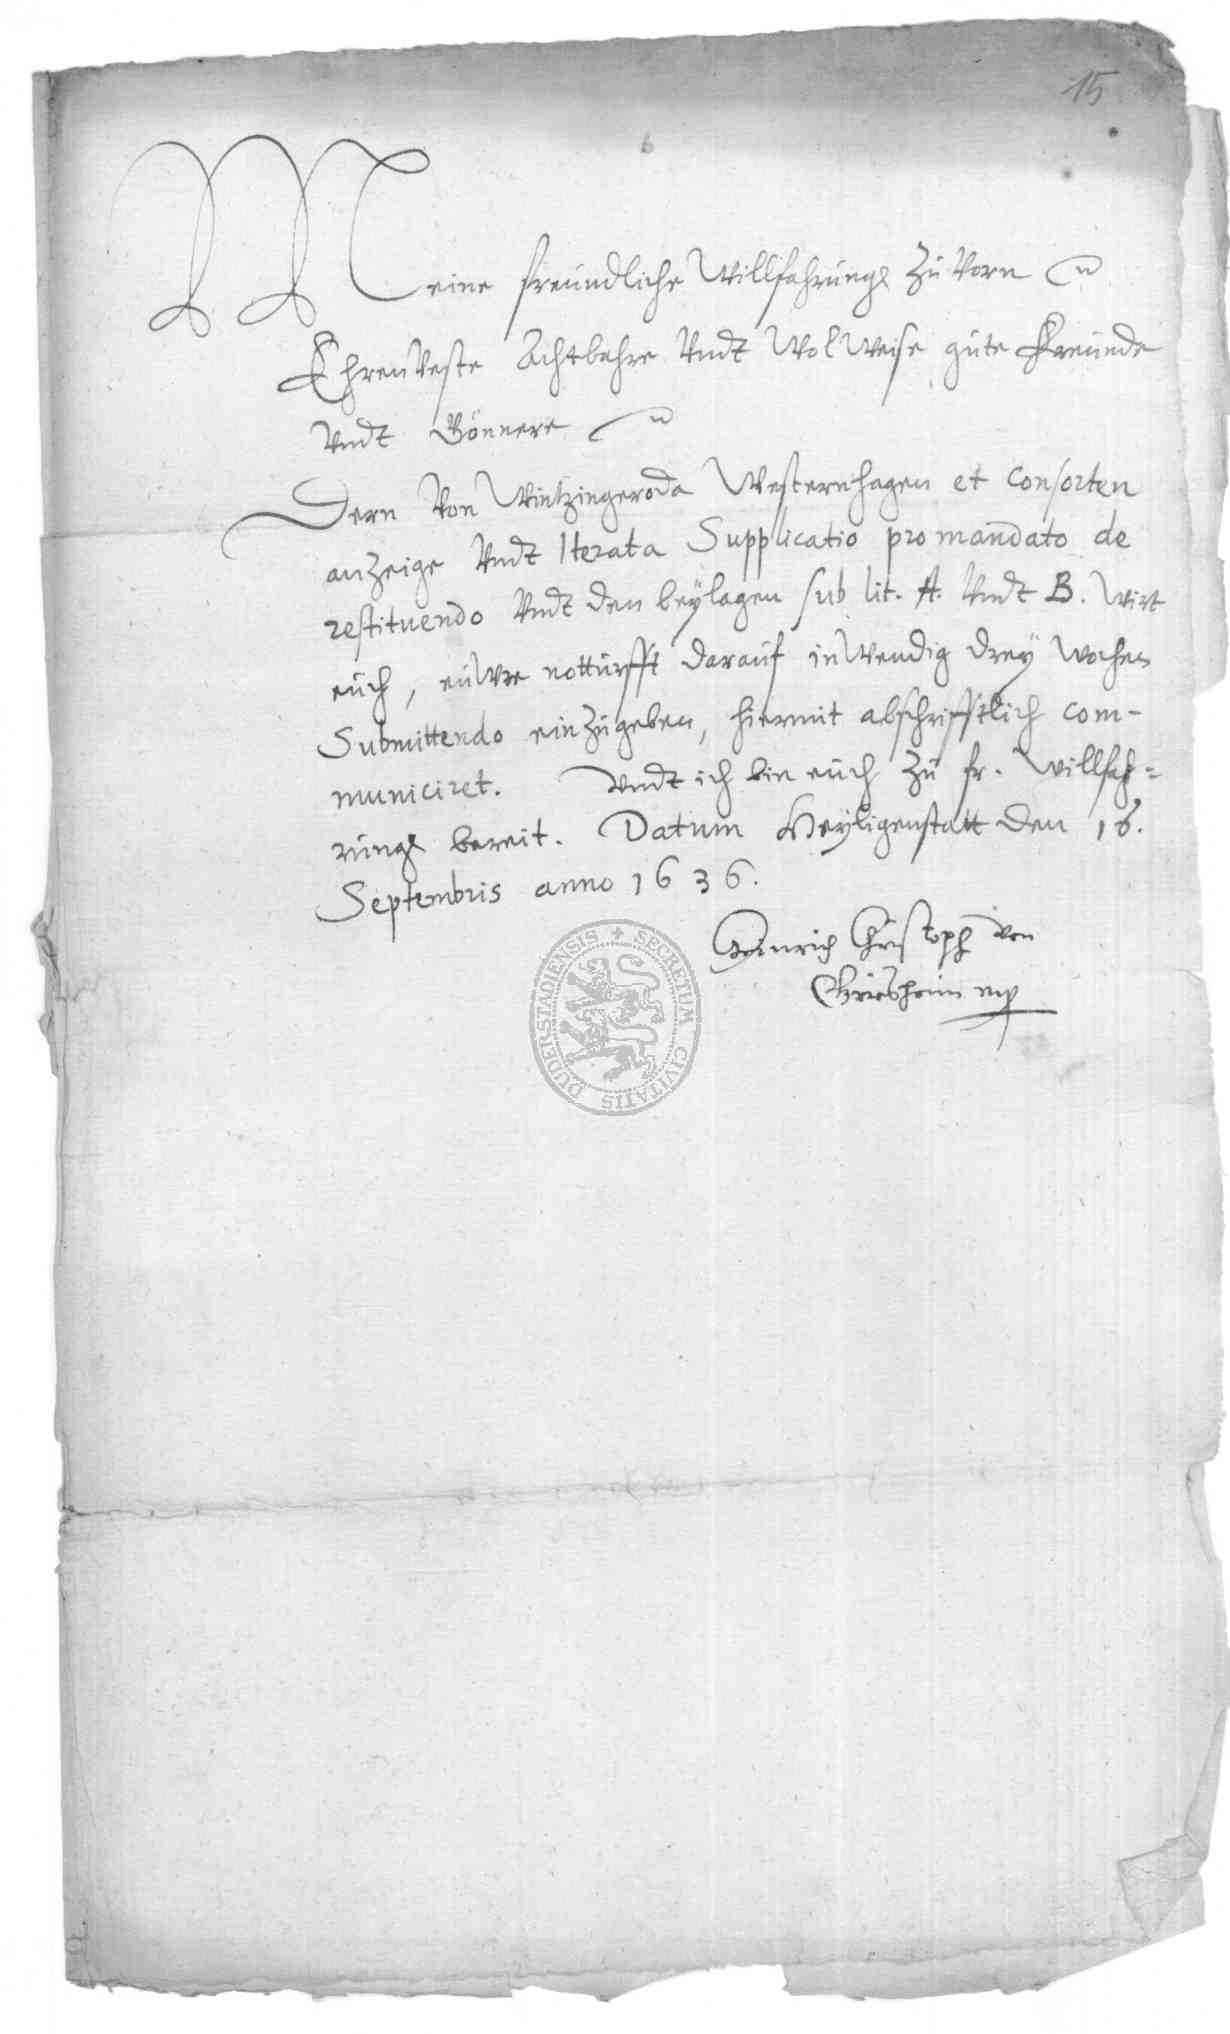 15
Meine freundliche Willfahrung zuvorn
EhrenVeste Achtbahre Vndt WolWeise gute Freunde
Vndt Gönnere
Dern Von Wintzingeroda Westernhagen et Consorten
anzeige Vndt Iterata Supplicatio pro mandato de
restituendo Vndt den beÿlagen sub lit. A. Vndt B. wirt
euch, euwre notturfft darauf inWendig dreÿ wochen
Submittendo einzugeben, hiermit abschrifftlich com-
municiret. Vndt ich bin euch zu fr. willfah=
rung bereit. Datum Heÿligenstatt den 16.
Septembris anno 1636.
Heinrich Christoph von
Griesheim mp
SECRETUM CIVITATIS DUDERSTADIENSIS